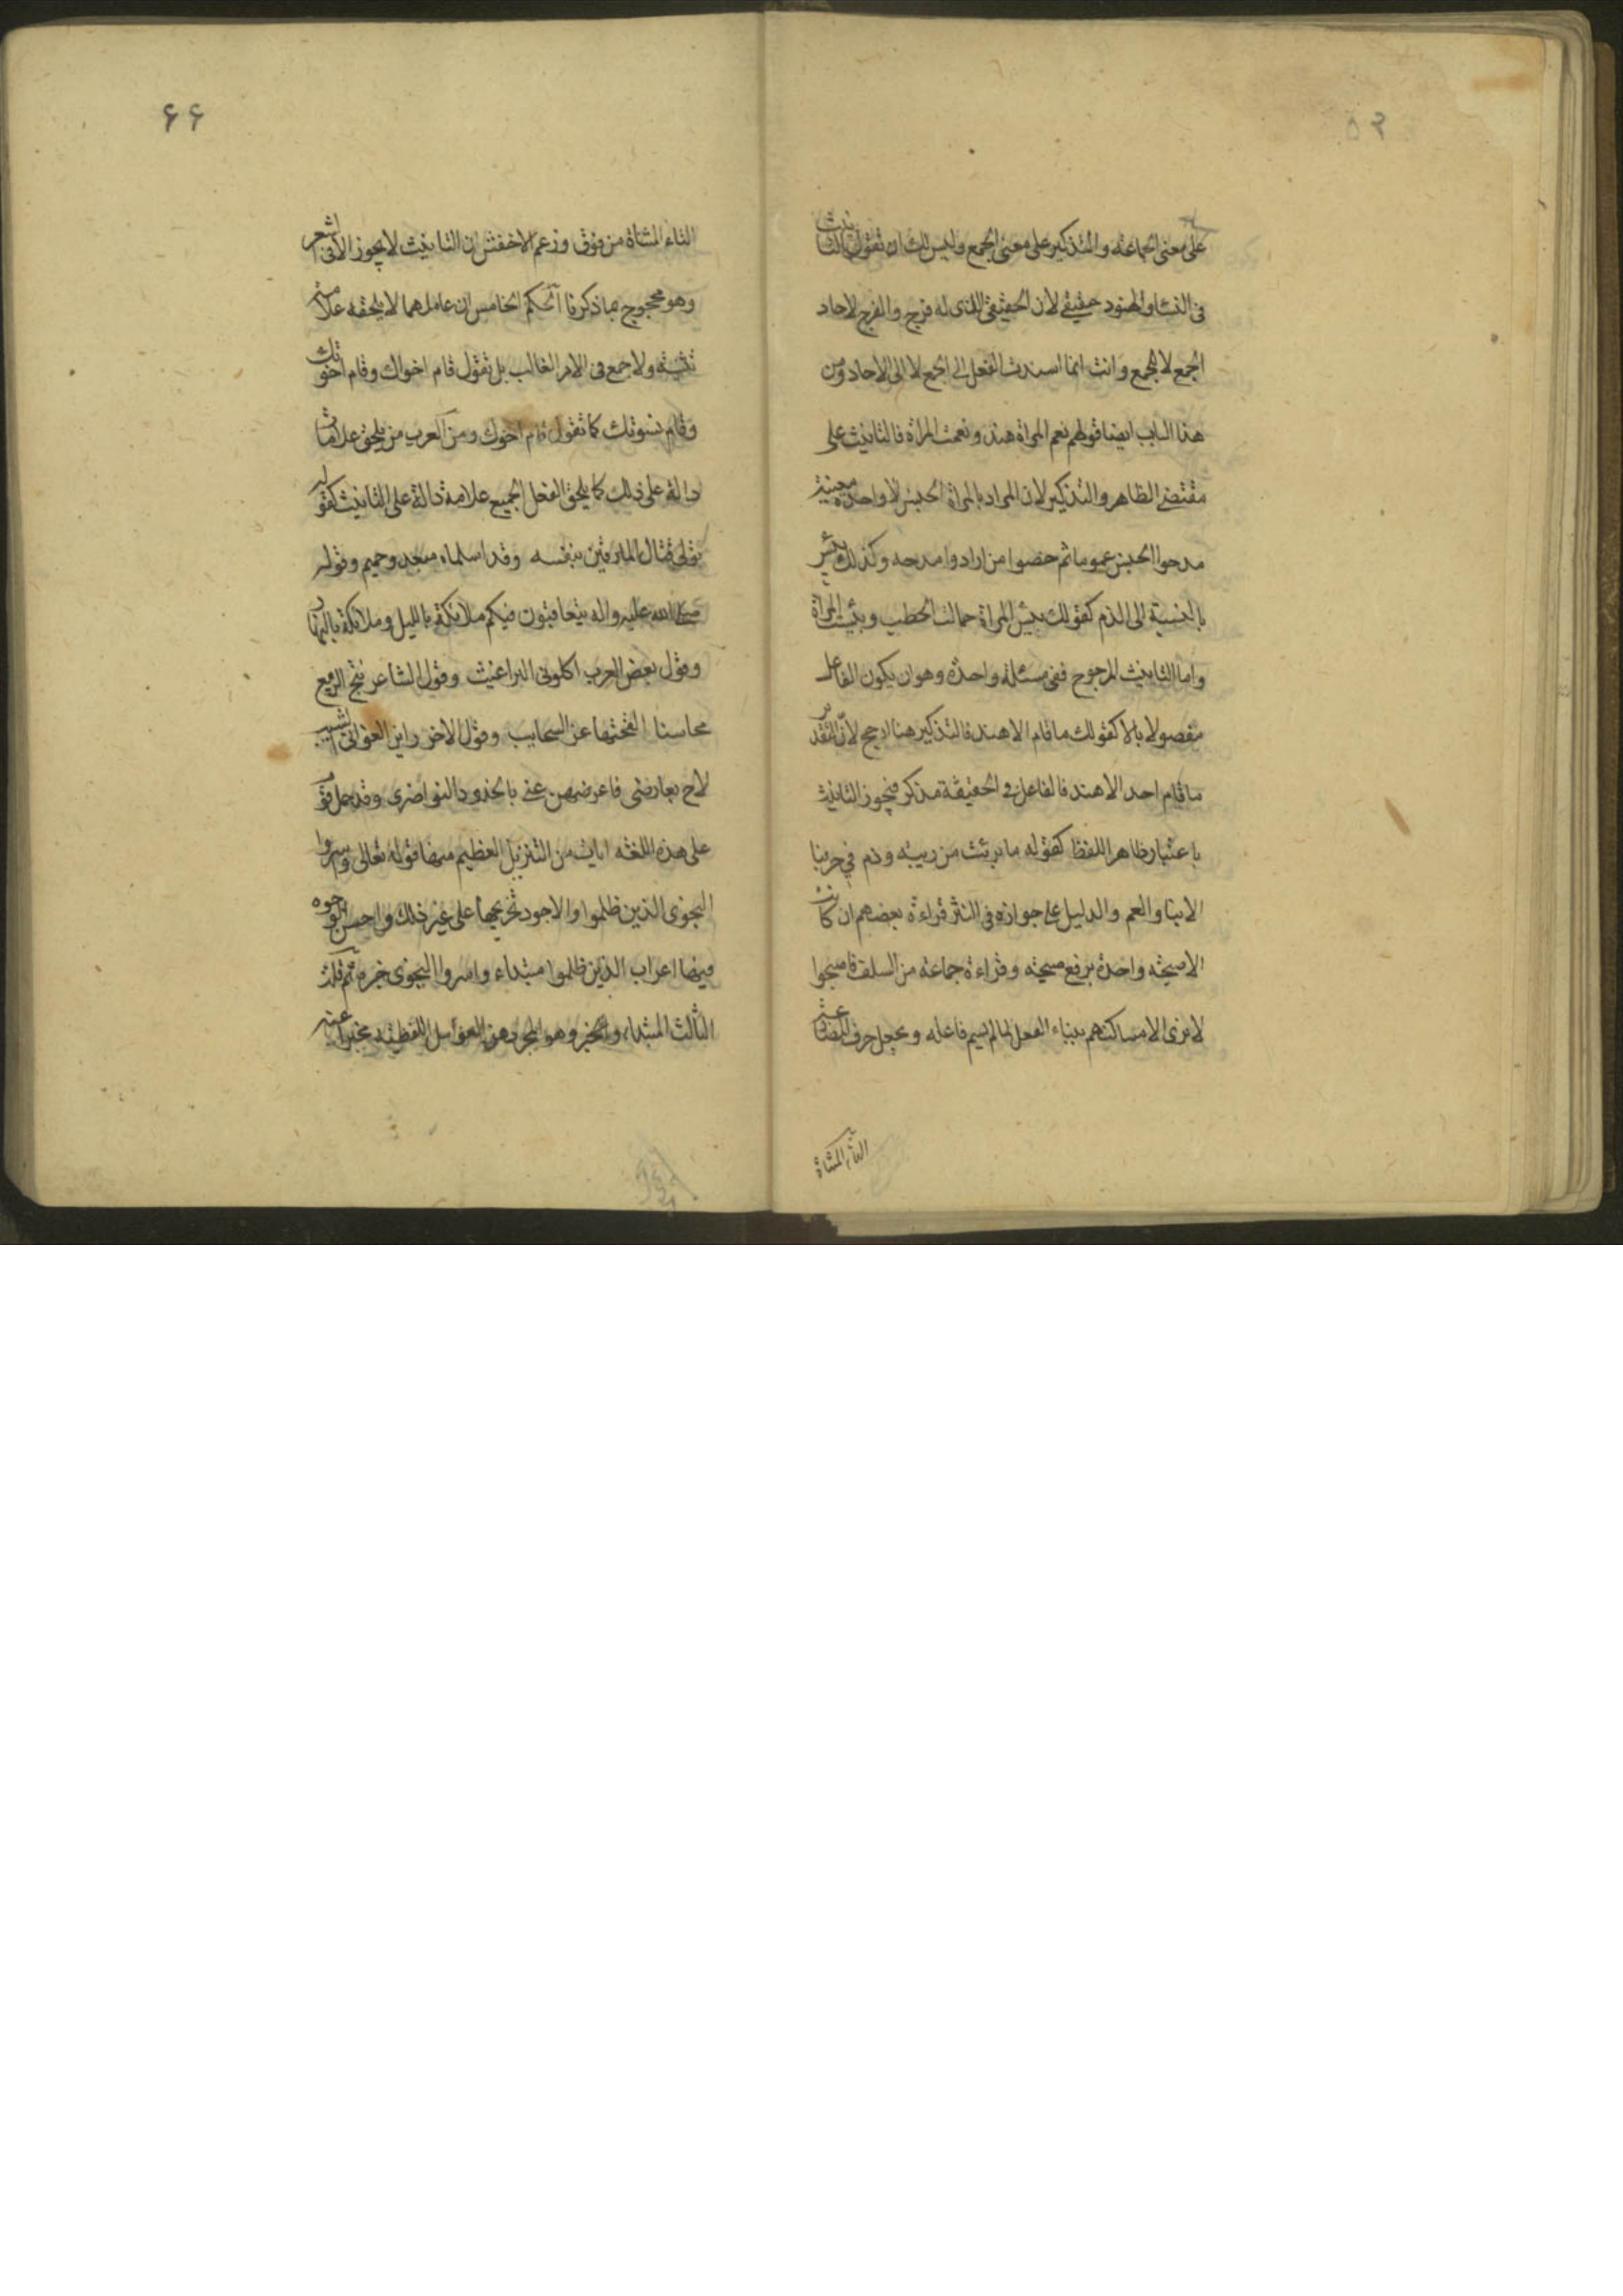 على معنى الجماعة والتذكير على معنى الجمع وليس لك ان تقول التانيث
فى النساء والهنود حقيقى لان الحقيقى الذى له فرج والفرج لاحاد
الجمع لا الجمع وانت انما اسندت الفعل الى الجمع لا الى الاحاد ومن
هذا الباب ايضا قولهم نعم المراة هند ونعمت المراة فالتانيث على
مقتضى الظاهر والتذكير لان المراد بالمراة الجنس لا واحدة معينة
مدحوا الجنس عموما ثم خصوا من ارادوا مدحه وكذلك بئس
بالنسبة الى الذم كقولك بئس المراة حمالت الحطب وبئست المراة
واما التانيث المرجوح ففى مسئلة واحدة وهو ان يكون الفاعل
مفصولا بالا كقولك ما قام الا هند فالتذكير هنا ارجح لان التقدير
ما قام احد الا هند فالفاعل فى الحقيقة مذكر فيجوز التانيث
باعتبار ظاهر اللفظ كقوله ما برئت من ريبة وذم فى حربنا
الا بنا والعم والدليل على جوازه فى النثر قراءة بعضهم ان كانت
الا صيحة واحدة برفع صيحة وقراءة جماعة من السلف فاصبحوا
لا ترى الا مساكنهم ببناء الفعل لما لم يسم فاعله وبجعل حرف المضارعة
التاء المثناة
۶۶
التاء المثناة من فوق وزعم الاخفش ان التانيث لا يجوز الا فى الشعر
وهو محجوج بما ذكرنا الحكم الخامس ان عاملهما لا يلحقه علامة
تثنية ولا جمع فى الامر الغالب بل تقول قام اخواك وقام اخوتك
وقام نسوتك كما تقول قام اخوك ومن العرب من يلحق علامات
دالة على ذلك كما يلحق الفعل الجميع علامة دالة على التانيث كقوله
تولى قتال المارقين بنفسه وقد اسلماه مبعد وحميم وقوله
صلى الله عليه واله يتعاقبون فيكم ملائكة بالليل وملائكة بالنهار
وقول بعض العرب اكلونى البراغيث وقول الشاعر نتج الربيع
محاسنا القحتها عز السحايب وقول الاخر راين الغوانى الشيب
لاح بعارضى فاعرضهن عنى بالخدود النواضرى وقد حمل قوم
على هذه اللغة ايات من التنزيل العظيم منها قوله تعالى واسروا
النجوى الذين ظلموا والاجود تخريجها على غير ذلك واحسن الوجوه
فيها اعراب الذين ظلموا مبتداء واسروا النجوى خبره ثم قلت
الثالث المبتداء والخبر وهو المجرد عن العوامل اللفظية مخبرا عنه